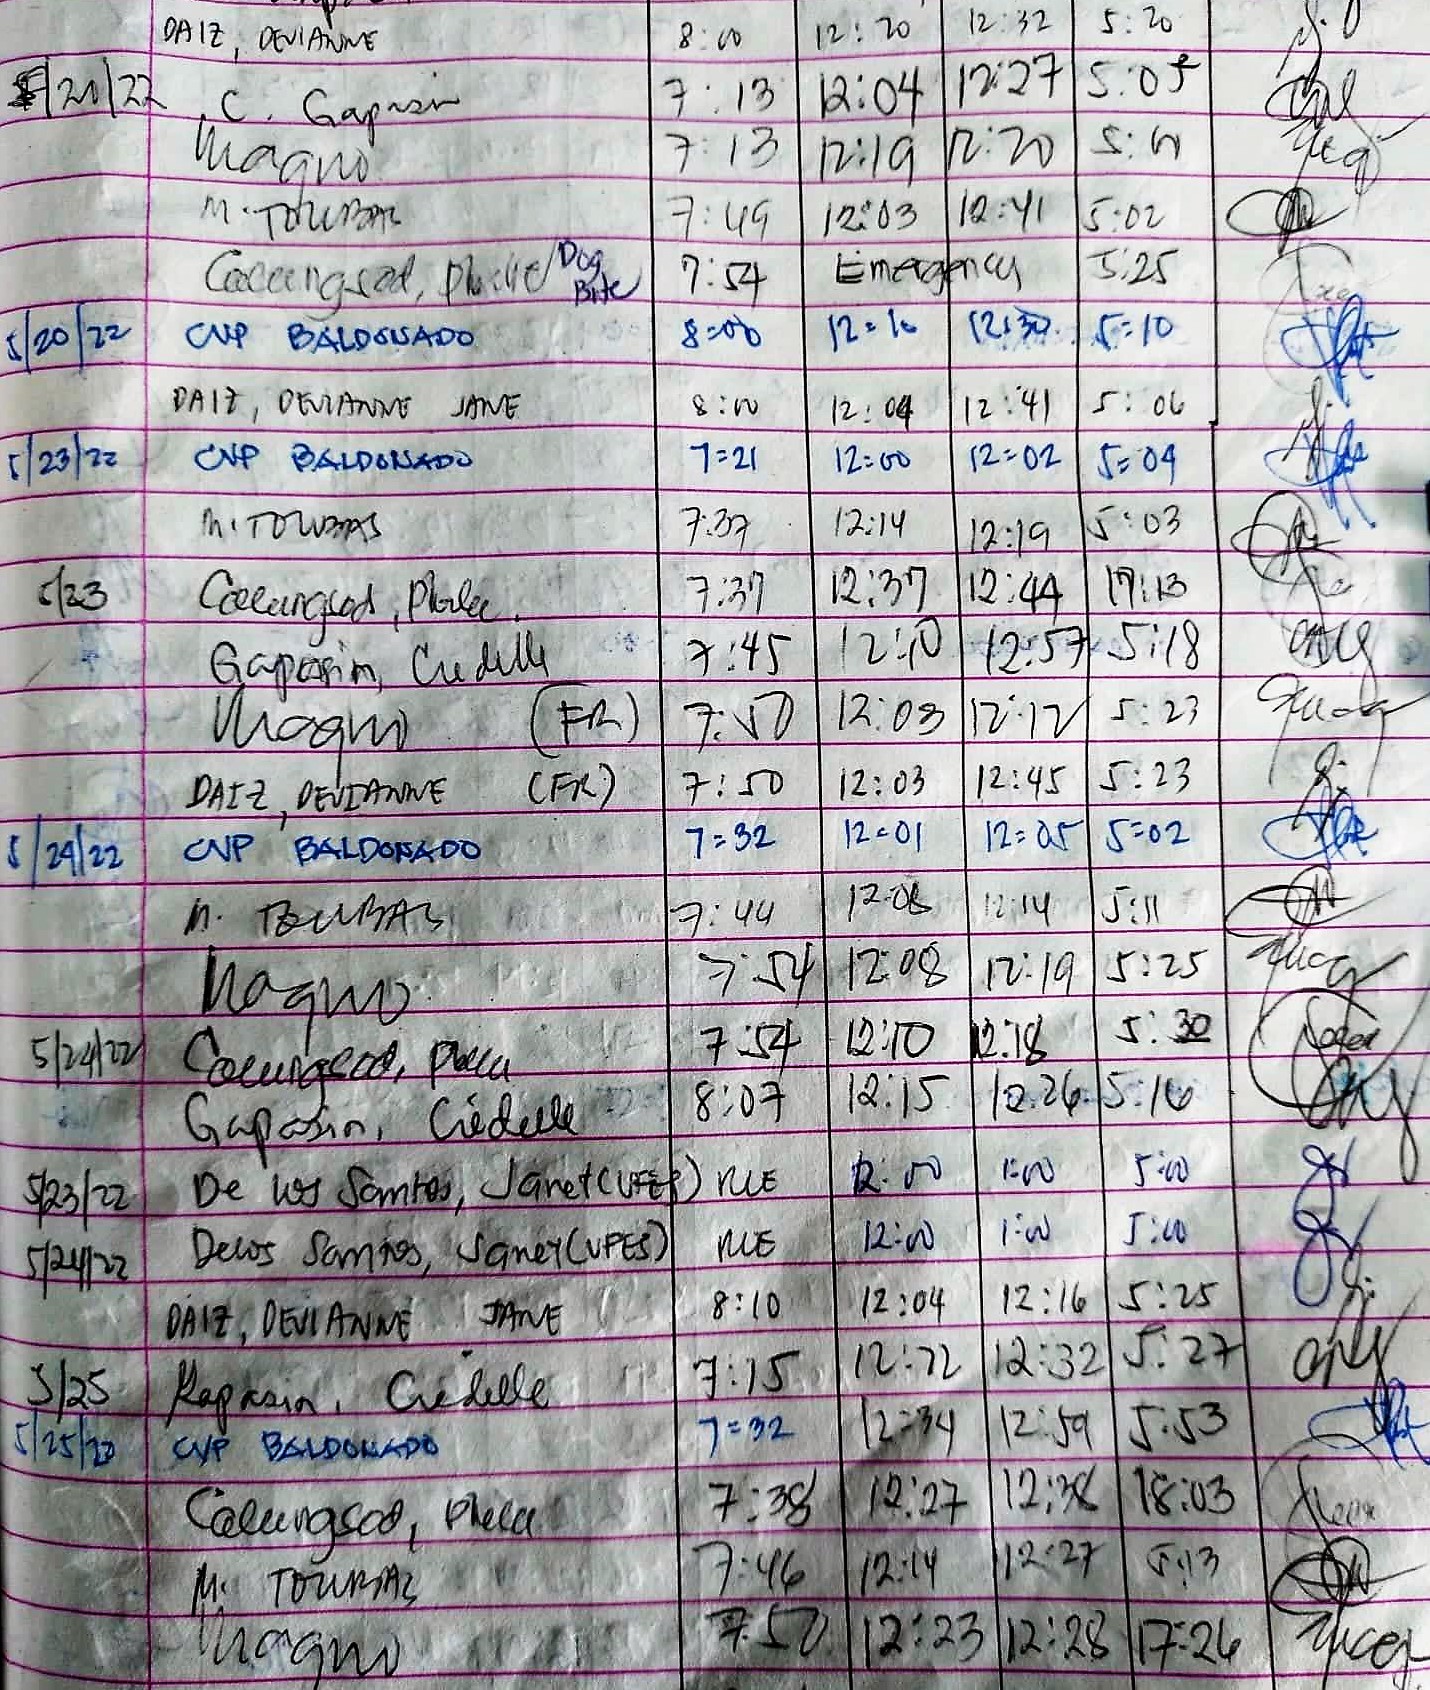 DAIZ, DEVIANNE 8:00 12:20 12:32 5:20
5/20/22 C. Gapasin 7:13 12:04 12:27 5:05
Magno 7:13 12:19 12:20 5:10
M. TOLIBAS 7:49 12:03 12:41 5:02
Calungsod, / Dog Bite 7:54 Emergency 5:25
5/20/22 CVP BALDONADO 8=00 12=10 12:30 5=10
DAIZ, DEVIANNE JANE 8:00 12:04 12:41 5:06
5/23/22 CVP BALDONADO 7=21 12=00 12=02 5=04
M. TOLIBAS 7:37 12:14 12:19 5:03
5/23 Calungsod, 7:37 12:37 12:44 17:13
Gapasin, Criedelle 7:45 12:10 12:57 5:18
Magno (FR) 7:50 12:03 12:12 5:23
DAIZ, DEVIANNE (FR) 7:50 12:03 12:45 5:23
5/24/22 CVP BALDONADO 7=32 12=01 12=05 5=02
M. TOLIBAS 7:44 12:08 12:14 5:11
Magno 7:54 12:08 12:19 5:25
5/24/22 Calungsod, 7:54 12:10 12:18 5:30
Gapasin, Criedelle 8:07 12:15 12:26 5:16
5/23/22 De los Santos, Janet (UPES) RLE 12:00 1:00 5:00
5/24/22 Delos Santos, Janet (UPES) RLE 12:00 1:00 5:00
DAIZ, DEVIANNE JANE 8:10 12:04 12:16 5:25
5/25 Gapasin, Criedelle 7:15 12:22 12:32 5:27
5/25/22 CVP BALDONADO 7=32 12=34 12:59 5:53
Calungsod, 7:38 12:27 12:38 18:03
M. TOLIBAS 7:46 12:14 12:27 5:13
Magno 7:50 12:23 12:28 17:26